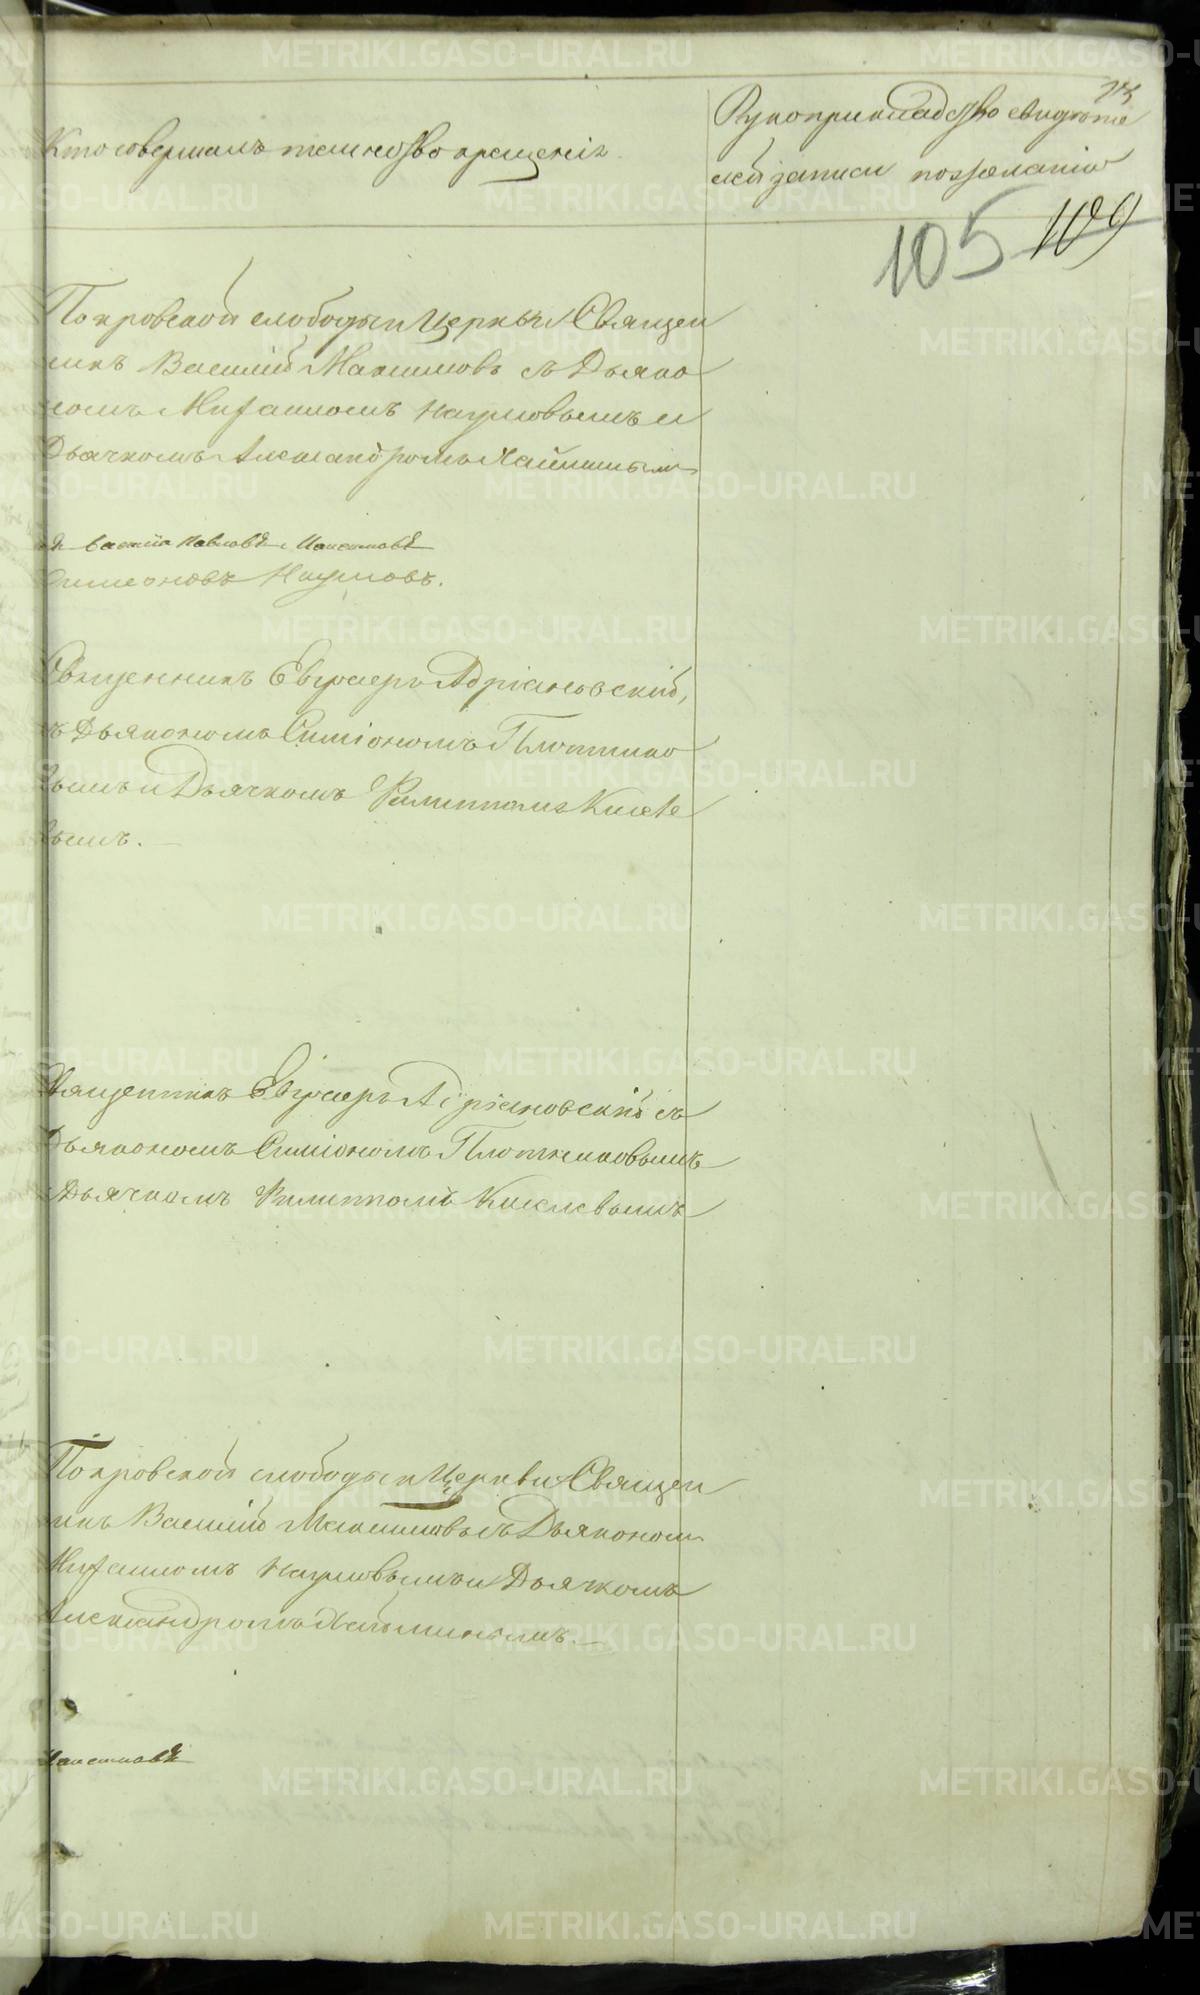 Кто совершалъ таинство крещенія.
Рукоприкладство свидѣте
лей записи по желанію
105 109
Покровской слободы Церкви Священ
никъ Василій Максимовъ съ Дьяко
номъ Наумовымъ и
Дьячкомъ Александромъ
Василій Павловъ Максимовъ
Симеоновъ Наумовъ.
Священникъ Евгра Адріановскій,
съ Дьякономъ Симіономъ Плотнико
вымъ и Дьячкомъ Филиппомъ Кисе
вымъ.
Священникъ Адріановскій съ
Дьякономъ Симіономъ Плотниковымъ
Дьячкомъ Филиппомъ Киселевымъ
Покровской слободы Церкви Священ
никъ Василій Максимовъ съ Дьякономъ
Наумовымъ и Дьячкомъ
Александромъ
Максимовъ
METRIKI.GASO-URAL.RU